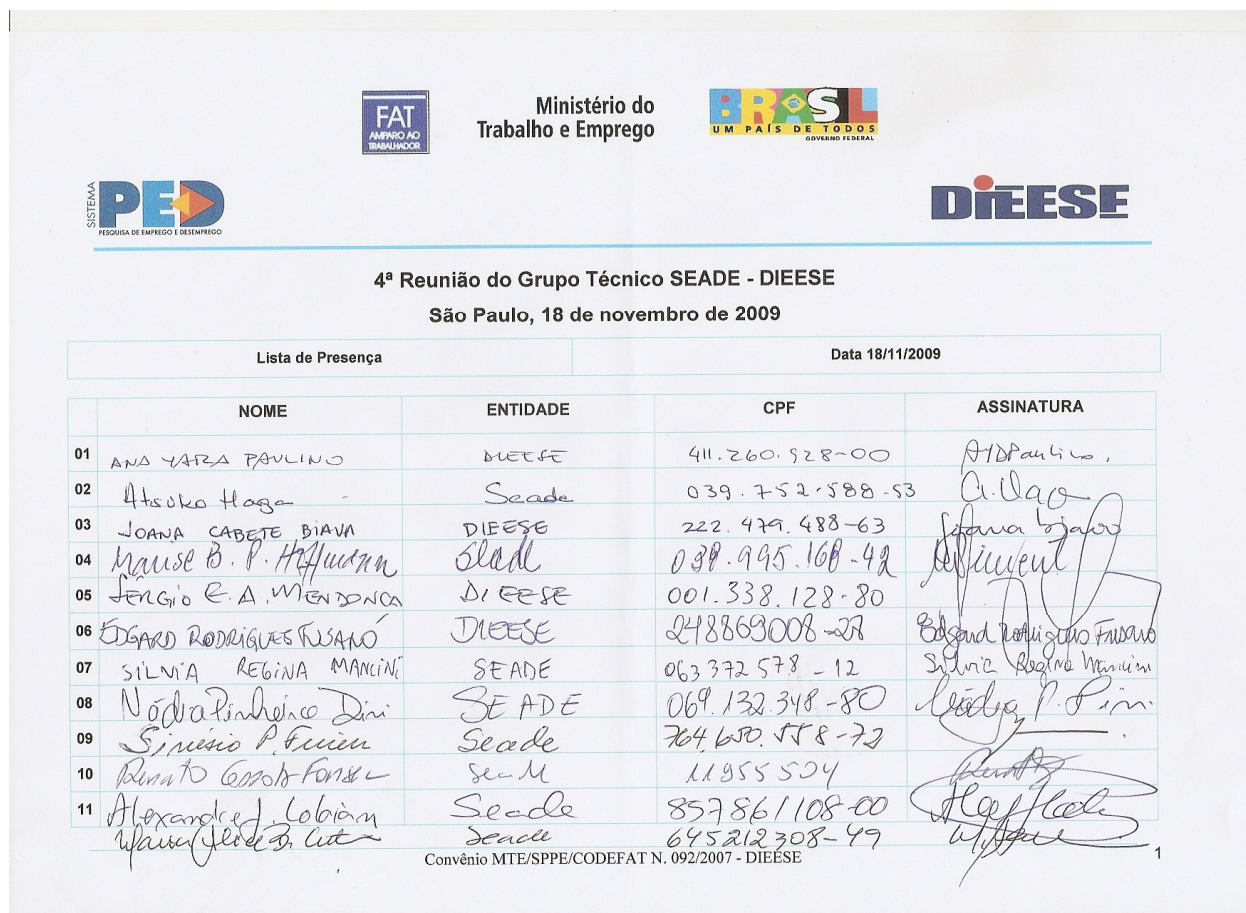 FAT
AMPARO AO
TRABALHADOR
Ministério do
Trabalho e Emprego
BRASIL
UM PAÍS DE TODOS
GOVERNO FEDERAL
SISTEMA
PED
PESQUISA DE EMPREGO E DESEMPREGO
DIEESE
4ª Reunião do Grupo Técnico SEADE - DIEESE
São Paulo, 18 de novembro de 2009
Lista de Presença Data 18/11/2009
NOME ENTIDADE CPF ASSINATURA
01 ANA YARA PAULINO DIEESE 411.260.928-00 AYDPaulino.
02 Atsuko Haga Seade 039.752.588-53
03 JOANA CABETE BIAVA DIEESE 222.479.488-63 Joana Biava
04 B. P. Hoffmann Seade
05 SÉRGIO E. A. MENDONÇA DIEESE 001.338.128-80
06 EDGARD RODRIGUES FUSARO DIEESE 248869008-28 Edgard Rodrigues Fusaro
07 SILVIA REGINA MANCINI SEADE 063372578-12 Silvia Regina Mancini
08 Nádia Pinheiro Dini SEADE 069.132.348-80
09 Sinésio P. Seade
10 Renato Fonseca 11955504
11 Alexandre J. Seade 857861108-00
Seade 645212308-49
Convênio MTE/SPPE/CODEFAT N. 092/2007 - DIEESE
1